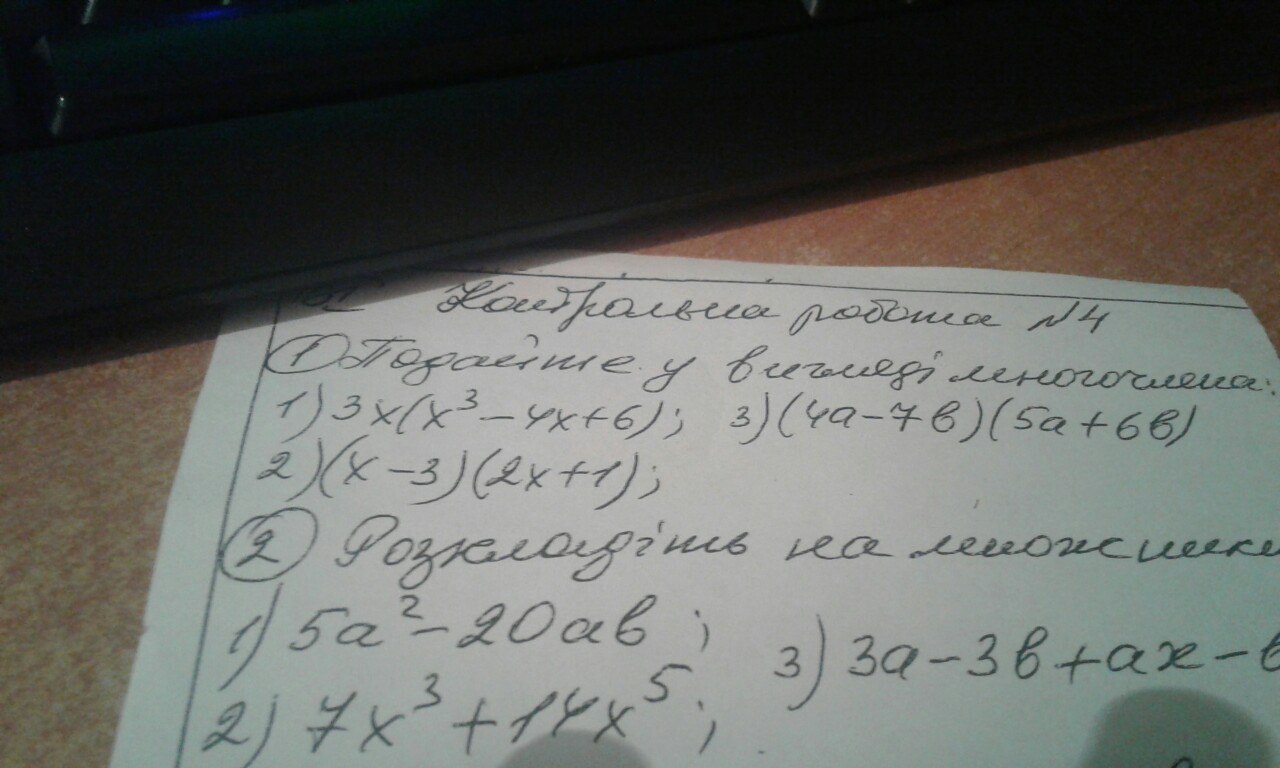 Контрольна робота №4
① Подайте у вигляді многочлена:
1) 3x(x³ − 4x + 6); 3) (4a − 7b)(5a + 6b)
2) (x − 3)(2x + 1);
② Розкладіть на множники
1) 5a² − 20ab; 3) 3a − 3b + ax − b
2) 7x³ + 14x⁵;